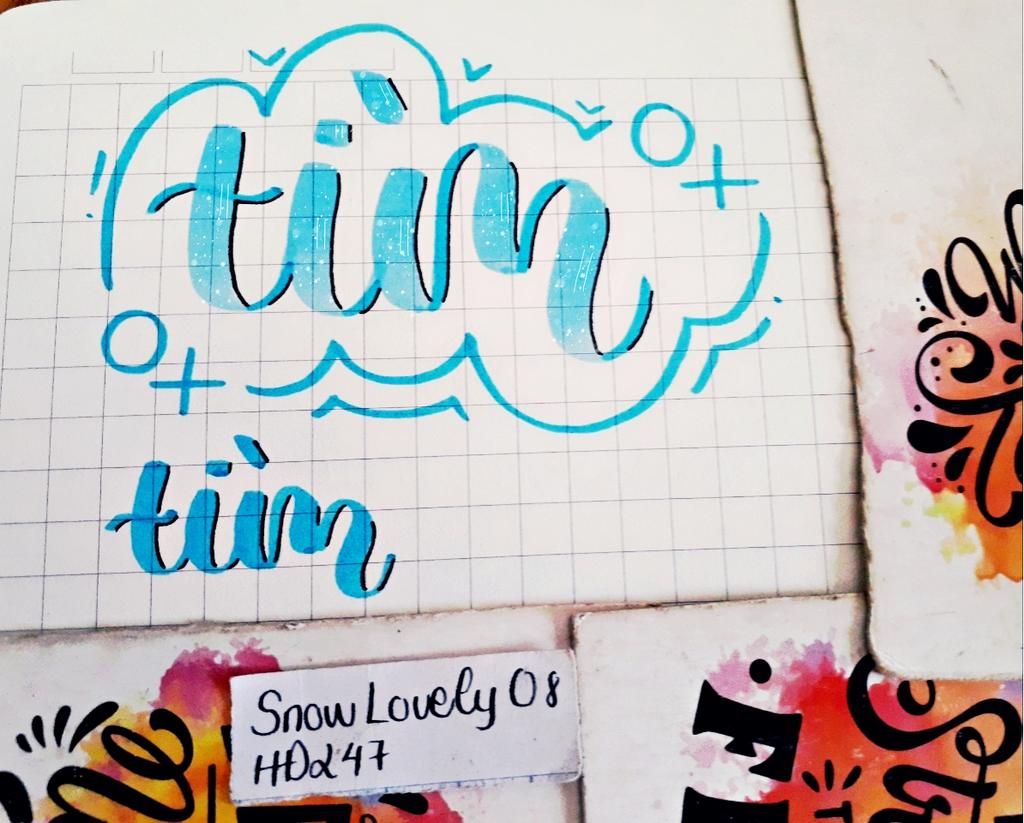 tìm
tìm
Snow Lovely 08
HD247